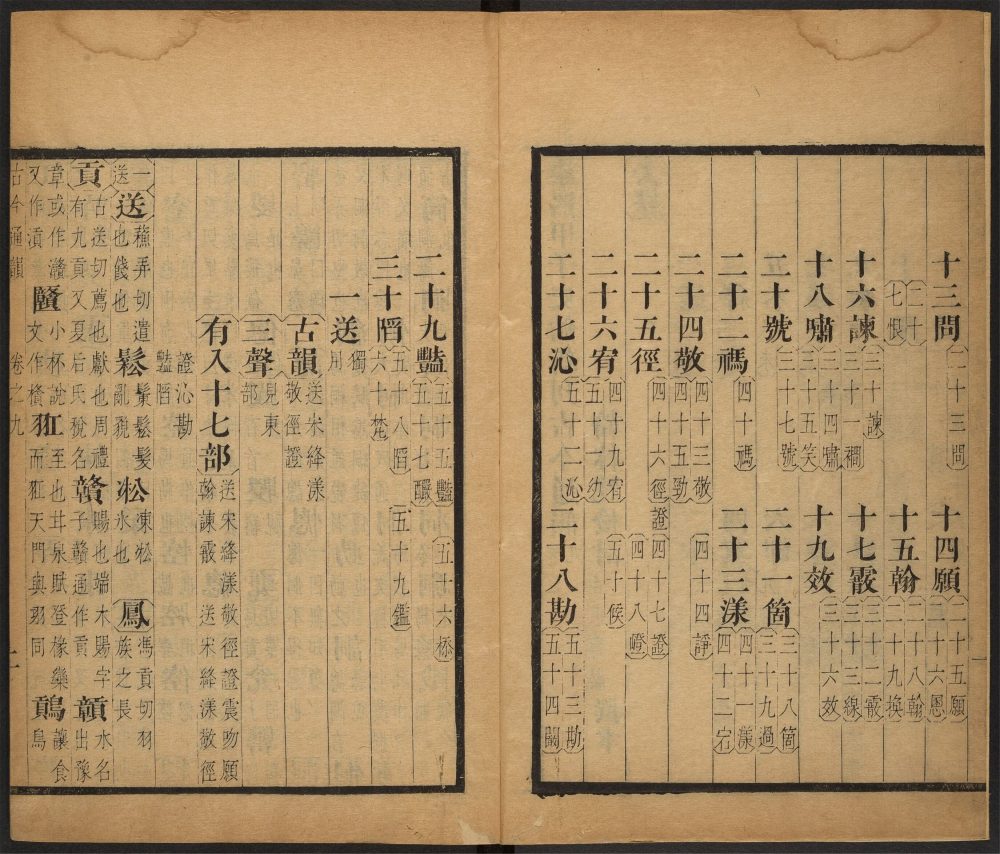 十三問 二十三問 十四願 二十五願 二十六慁
二十七恨 十五翰 二十八翰 二十九換
十六諫 三十諫 三十一襇 十七霰 三十二霰 三十三線
十八嘯 三十四嘯 三十五笑 十九效 三十六效
二十號 三十七號 二十一箇 三十八箇 三十九過
二十二禡 四十禡 二十三漾 四十一漾 四十二宕
二十四敬 四十三敬 四十五勁 四十四諍
二十五徑 四十六徑 證四十七證 四十八嶝
二十六宥 四十九宥 五十一幼 五十候
二十七沁 五十二沁 二十八勘 五十三勘 五十四闞
二十九豔 五十五豔 五十七釅 五十六㮇
三十陷 五十八陷 六十梵 五十九鑑
一送 獨用
古韻 送宋絳漾敬徑證
三聲 見東部
有入十七部 送宋絳漾敬徑證震吻願翰諫霰 送宋絳漾敬徑
證沁勘豔陷
一送 送 蘓弄切遣也餞也 鬆 鬇鬆髮亂貌 凇 凍凇氷也 鳳 馮貢切羽族之長
貢 古送切薦也獻也周禮有九貢又夏后氏稅名 贛 賜也端木賜字子贛通作貢又 水名出豫
章或作灨 小杯說文作 至也甘泉賦登椽欒而 天門與羾同 鳥 讓食
又作湏
古今通韻 卷之九